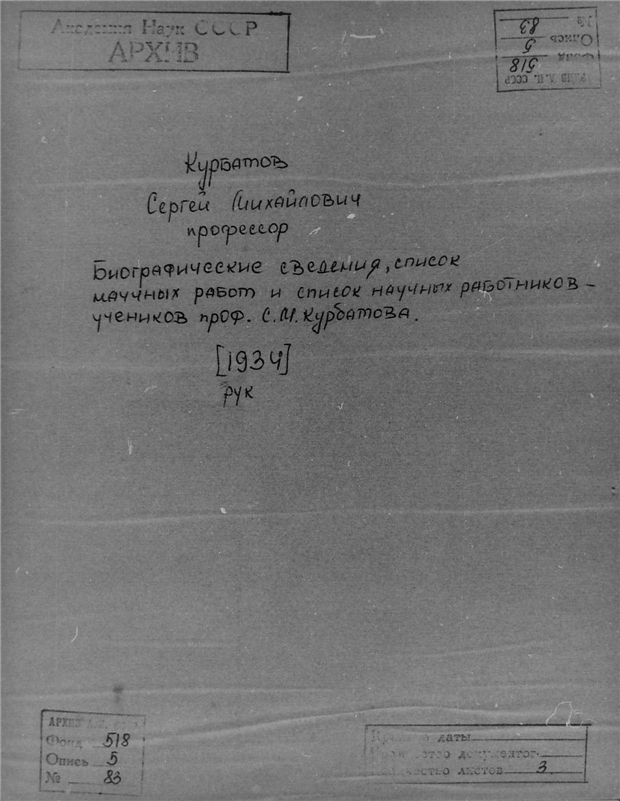 Академия Наук СССР
АРХИВ
АРХИВ А.Н. СССР
Фонд 518
Опись 5
№ 83
Курбатов
Сергей Михайлович
профессор
Биографические сведения, список
научных работ и список научных работников –
учеников проф. С.М. Курбатова.
[1934]
рук
АРХИВ
Фонд 518
Опись 5
№ 83
даты
документов
листов 3